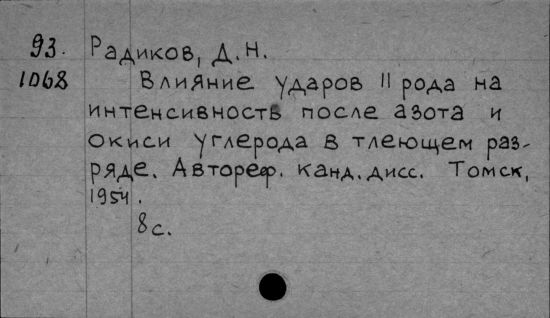 93. Радиков, Д.Н.
1068 Влияние ударов II рода на
интенсивность после азота и
окиси углерода в тлеющем раз-
ряде. Автореф. канд. дисс. Томск,
1954.
8с.